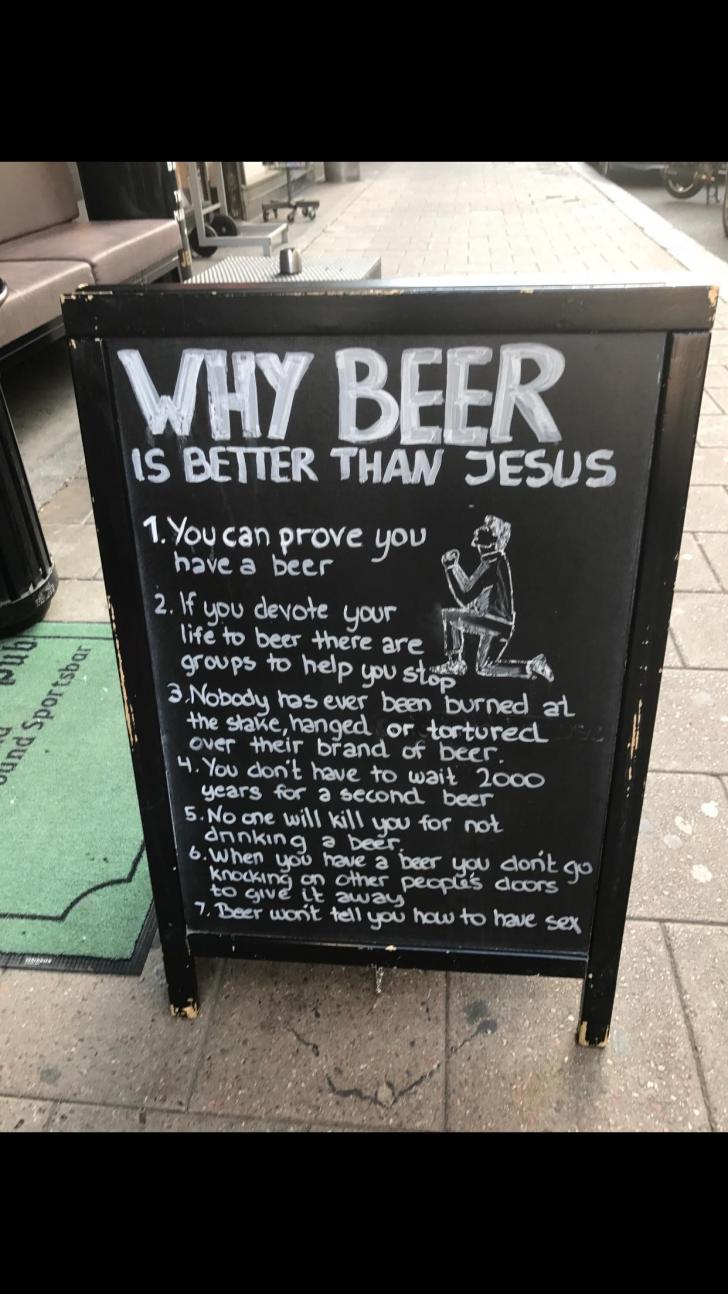 WHY BEER
IS BETTER THAN JESUS
1. You can prove you
have a beer
2. If you devote your
life to beer there are
groups to help you stop
3. Nobody has ever been burned at
the stake, hanged or tortured
over their brand of beer.
4. You don't have to wait 2000
years for a second beer
5. No one will kill you for not
drinking a beer.
6. When you have a beer you don't go
knocking on other people's doors
to give it away
7. Beer won't tell you how to have sex
Pub
ound Sportsbar